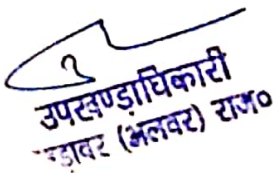 उपखण्डाधिकारी
(अलवर) राज०